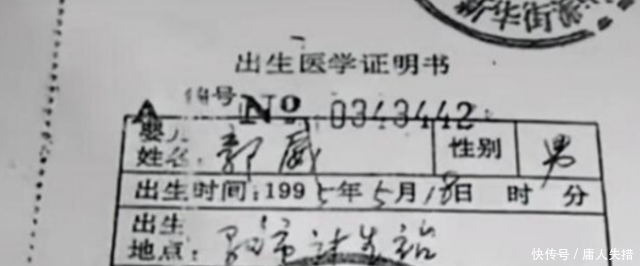 新华街派
出生医学证明书
A 编号 No. 0343442
婴儿姓名: 郭威 性别 男
出生时间:1995年5月18日 时 分
出生地点: 计生站
快传号/庸人失措